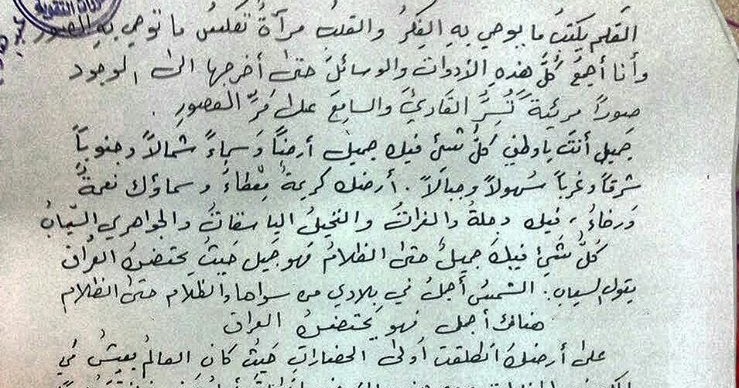 القلم يكتب ما يوحي به الفِكرُ والقلبُ مرآةٌ تعكسُ ما توحي به
وأنا أجمعُ كُلَّ هذهِ الأدوات والوسائلَ حتى أخرجها الى الوجود
صوراً مرئيةً تَسُرُّ القارئَ والسامِعَ على مَرِّ العصورِ .
جميل أنتَ يا وطني كلُّ شئٍ فيك جميل أرضاً وَسماءً شمالاً وجنوباً
شرقاً وغرباً سُهولاً وجبالاً . أرضك كريمةٌ مِعْطاءٌ وسماؤك نعمةٌ
وَرخاءٌ ، فيك دجلةُ والفراتُ والنخيلُ الباسقاتُ والجواهري السيّابُ
كلُّ شَئٍ فيكَ جميلٌ حتى الظلامُ فهو جميل حيثُ يحتضنُ العراق
يقول السياب : الشمسُ أجملُ في بلادي من سواها والظلام حتى الظلام
هناك أجمل فهو يحتضنُ العراق
على أرضك انطلقت أولى الحضاراتِ حيثُ كان العالمُ يعيشُ في